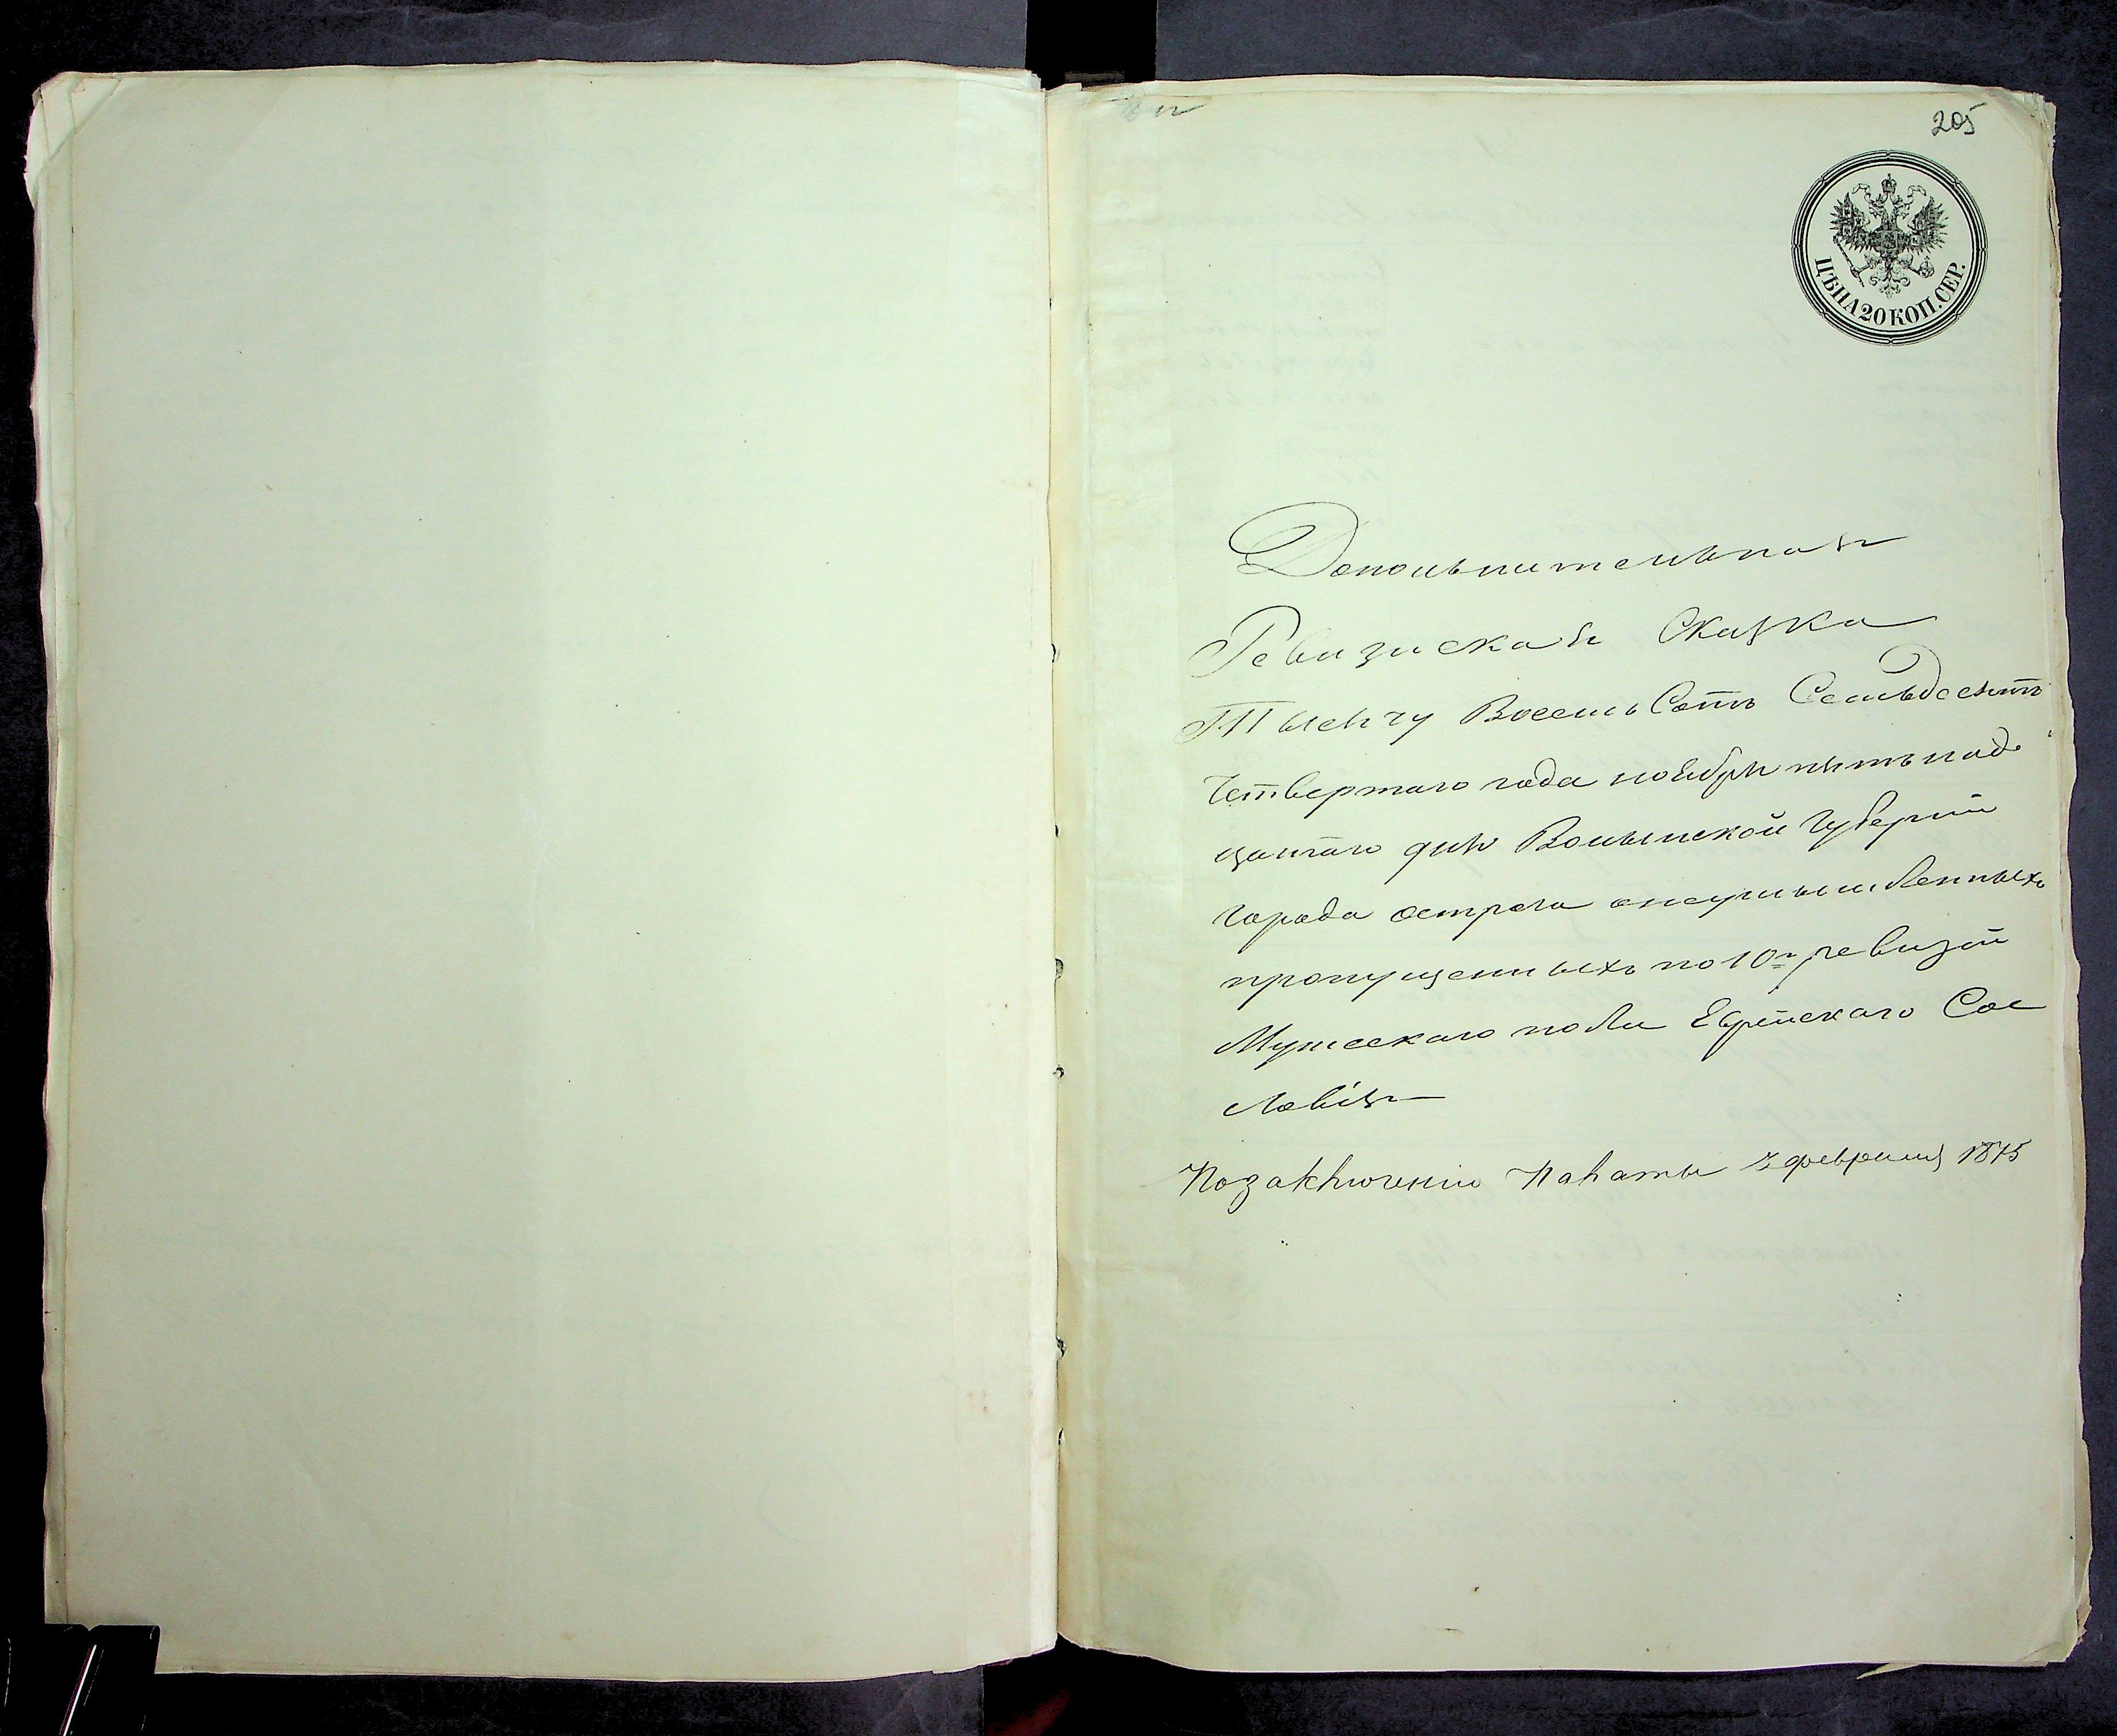 205
ЦѢНА 20 КОП. СЕР.
Допольнительная
Ревизская Сказка
Тысячу Восемь Сотъ Семьдесятъ
Четвертаго года ноября пятьнад
цатаго дня Волынской Губерніи
Города Острога о неумышленныхъ
пропущенныхъ по 10й ревизіи
Мужескаго пола Еврейскаго Сос
ловія
По заключенію Палаты февраля 1875